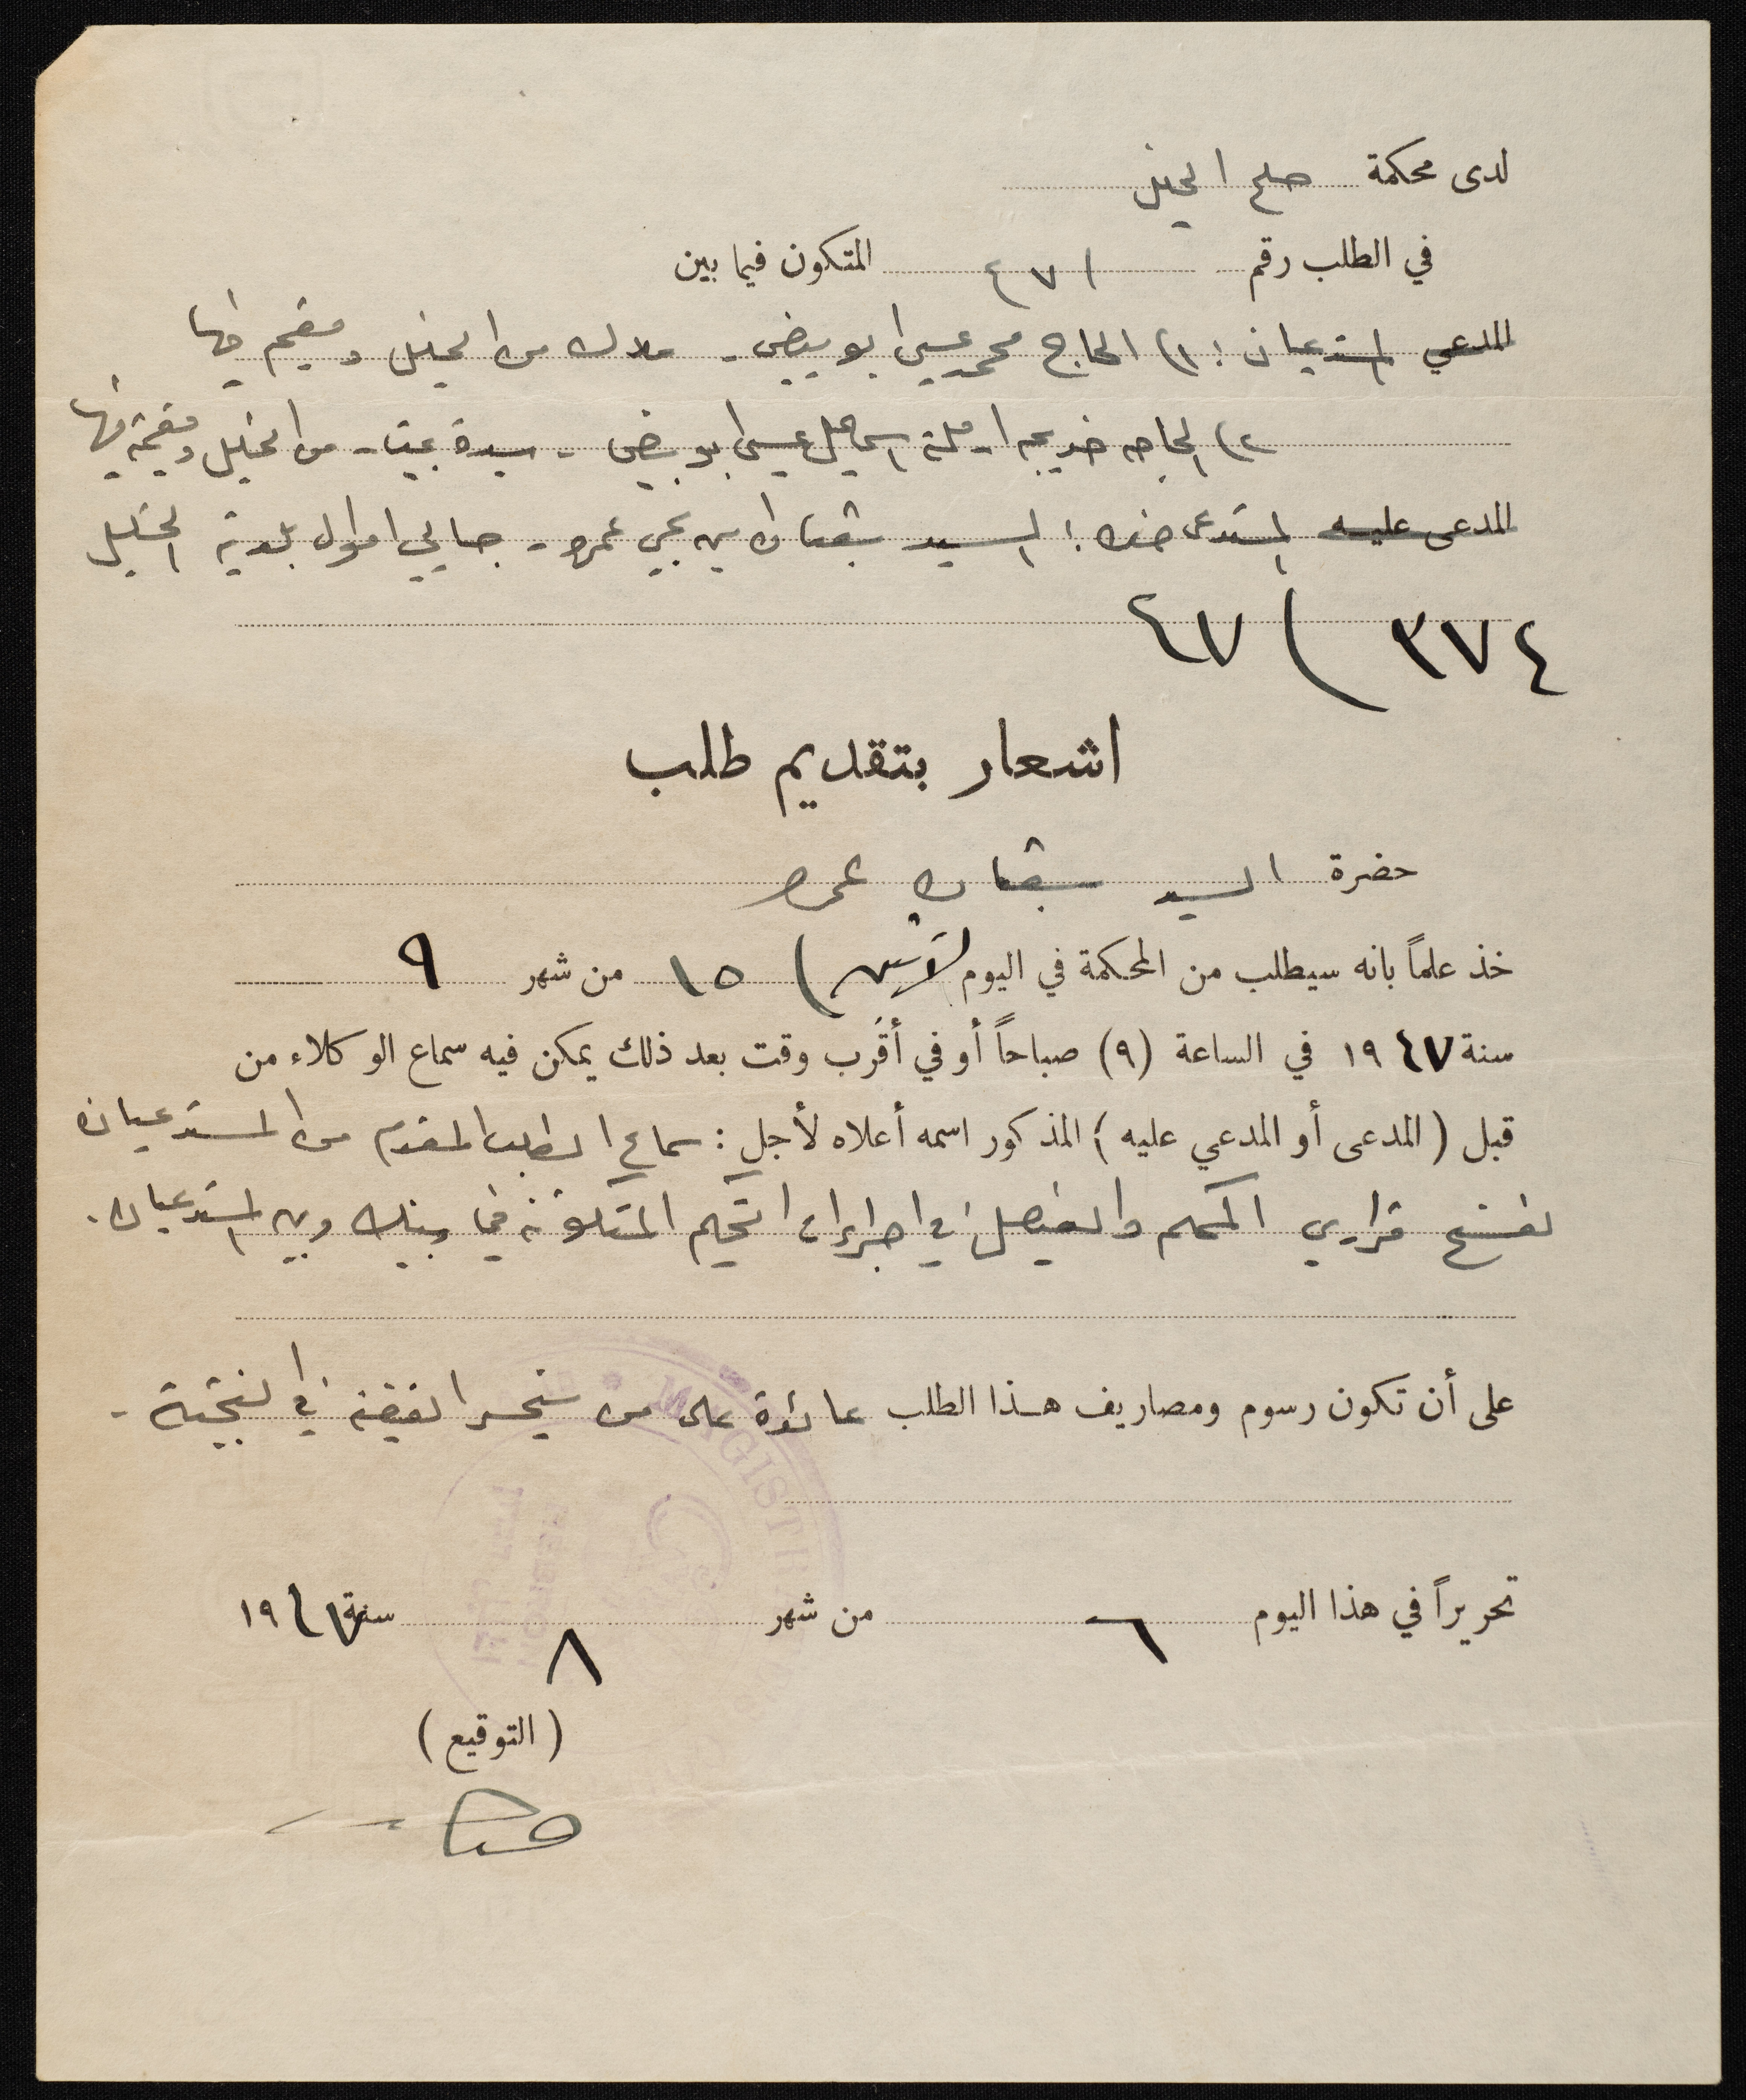 لدى محكمة صلح الخليل
في الطلب رقم / ٤٧ المتكون فيما بين
المدعي المستدعيان : ١) الحاج محمد عيسى ابو بيضي - ملاك من الخليل ومقيم فيها
٢) الحاجه خديجه ارملة اسماعيل عيسى ابو بيضي - سيدة بيت - من الخليل ومقيمة فيها
المدعى عليه المستدعى ضده : السيد شعبان بن يحيى عمرو - جابي اموال بلدية الخليل
٣٧٤ / ٤٧
اشعار بتقديم طلب
حضرة السيد شعبان عمرو
خذ علماً بانه سيطلب من المحكمة في اليوم الاثنين / ١٥ من شهر ٩
سنة ١٩٤٧ في الساعة (٩) صباحاً أو في أقرب وقت بعد ذلك يمكن فيه سماع الوكلاء من
قبل (المدعى أو المدعي عليه) المذكور اسمه أعلاه لأجل : سماع الطلب المقدم من المستدعيان
لفسخ قراري المحكم والفيصل في اجراءات التحكيم المتكونة فيما بينك وبين المستدعيان .
على أن تكون رسوم ومصاريف هذا الطلب عائدة على من سيخسر القضية في النتيجة -
MAGISTR
تحريراً في هذا اليوم ٦ من شهر ٨ سنة ١٩٤٧
(التوقيع)